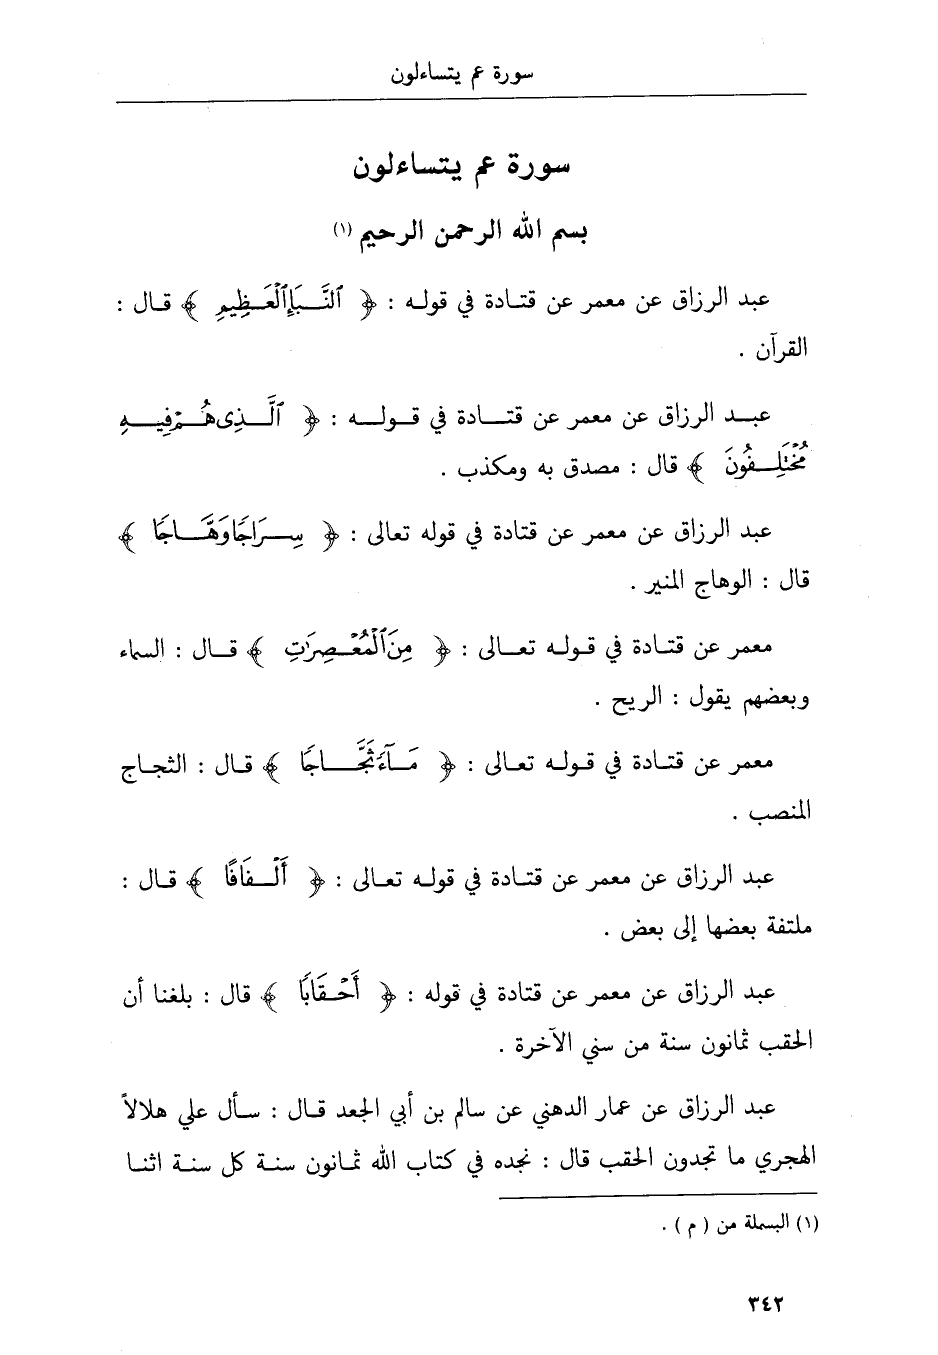 سورة عم يتساءلون
سورة عم يتساءلون
بسم الله الرحمن الرحيم (١)
عبد الرزاق عن معمر عن قتادة في قوله : ﴿ ٱلنَّبَإِ ٱلْعَظِيمِ ﴾ قال :
القرآن .
عبد الرزاق عن معمر عن قتادة في قوله : ﴿ ٱلَّذِى هُمْ فِيهِ
مُخْتَلِفُونَ ﴾ قال : مصدق به ومكذب .
عبد الرزاق عن معمر عن قتادة في قوله تعالى : ﴿ سِرَاجًا وَهَّاجًا ﴾
قال : الوهاج المنير .
معمر عن قتادة في قوله تعالى : ﴿ مِنَ ٱلْمُعْصِرَٰتِ ﴾ قال : السماء
وبعضهم يقول : الريح .
معمر عن قتادة في قوله تعالى : ﴿ مَآءً ثَجَّاجًا ﴾ قال : الثجاج
المنصب .
عبد الرزاق عن معمر عن قتادة في قوله تعالى : ﴿ أَلْفَافًا ﴾ قال :
ملتفة بعضها إلى بعض .
عبد الرزاق عن معمر عن قتادة في قوله : ﴿ أَحْقَابًا ﴾ قال : بلغنا أن
الحقب ثمانون سنة من سني الآخرة .
عبد الرزاق عن عمار الدهني عن سالم بن أبي الجعد قال : سأل علي هلالاً
الهجري ما تجدون الحقب قال : نجده في كتاب الله ثمانون سنة كل سنة اثنا
(١) البسملة من ( م ) .
٣٤٢